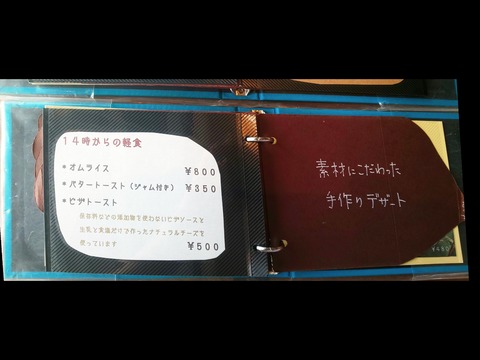 14時からの軽食
*オムライス ¥800
*バタートースト(ジャム付き) ¥350
*ピザトースト
保存料などの添加物を使わないピザソースと
生乳と食塩だけで作ったナチュラルチーズを
使っています
¥500
素材にこだわった
手作りデザート